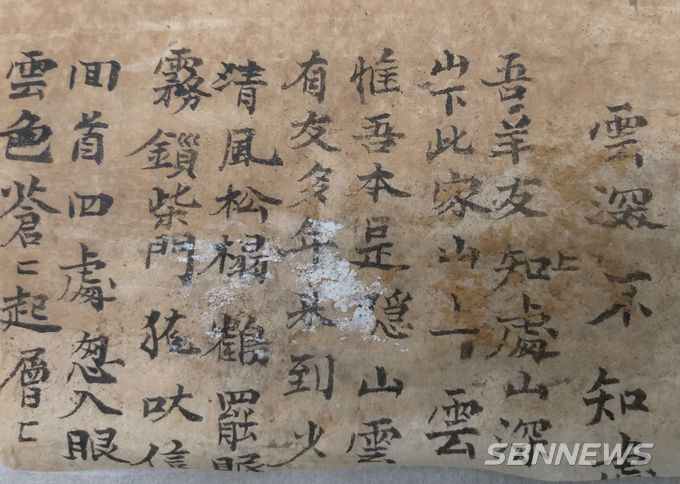 雲深不知處
吾羊友知上處山深
山下此家山上雲
惟吾本是隱山雲
有友多年未到少
清風松榻鶴罷眠
霧鎖柴門狵吠信
回首四處忽入眼
雲色蒼〻起層〻
SBNNEWS